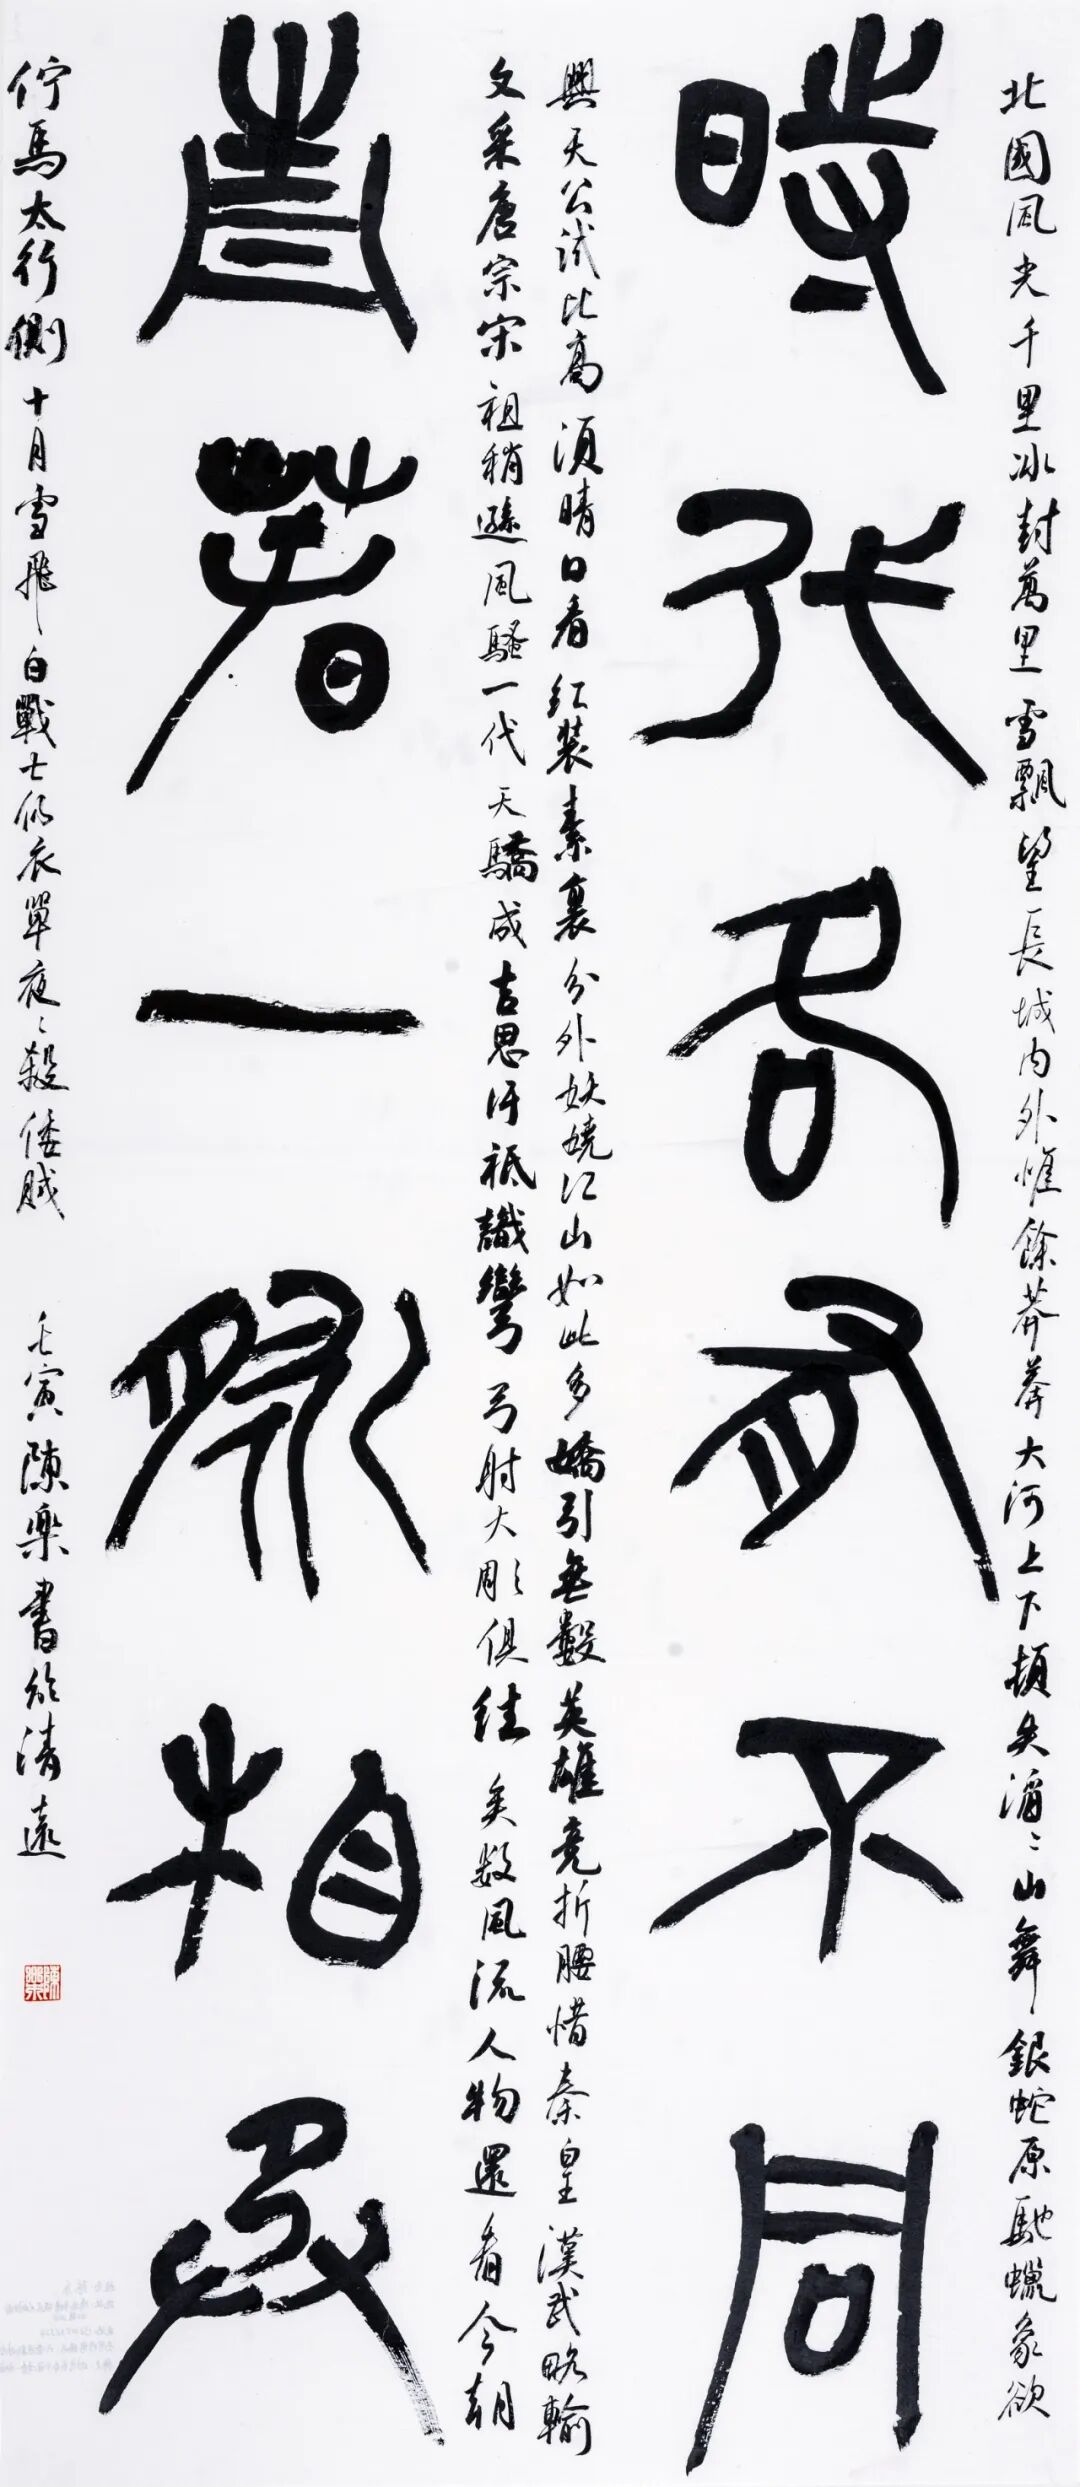 北國風光千里冰封萬里雪飄望長城内外惟餘莽莽大河上下頓失滔〻山舞銀蛇原馳蠟象欲
時代各有不同
與天公試比高須晴日看紅裝素裹分外妖嬈江山如此多嬌引無數英雄竞折腰惜秦皇漢武略輸
文采唐宗宋祖稍遜風騷一代天驕成吉思汗祗識彎弓射大彫俱往矣数風流人物還看今朝
青春一脉相承
佇馬太行側十月雪飛白戰士仍衣單夜〻殺倭賊 壬寅陳樂書於清遠